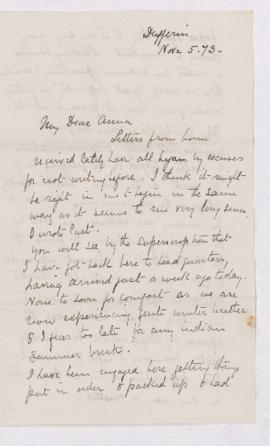 Dufferin
Nov 5. 73.
My Dear Anna
Letters from home
received lately have all begun by excuses
for not writing before. I think it might
be right in me to begin in the same
way as it seems to me very long since
I wrote last.
You will see by the superscription that
I have got back here to Head quarters,
having arrived just a week ago today.
None to soon for comfort as we are
now experiencing quite winter weather
& I fear too late for any indian
summer
I have been engaged here getting things
put in order & packed up & had